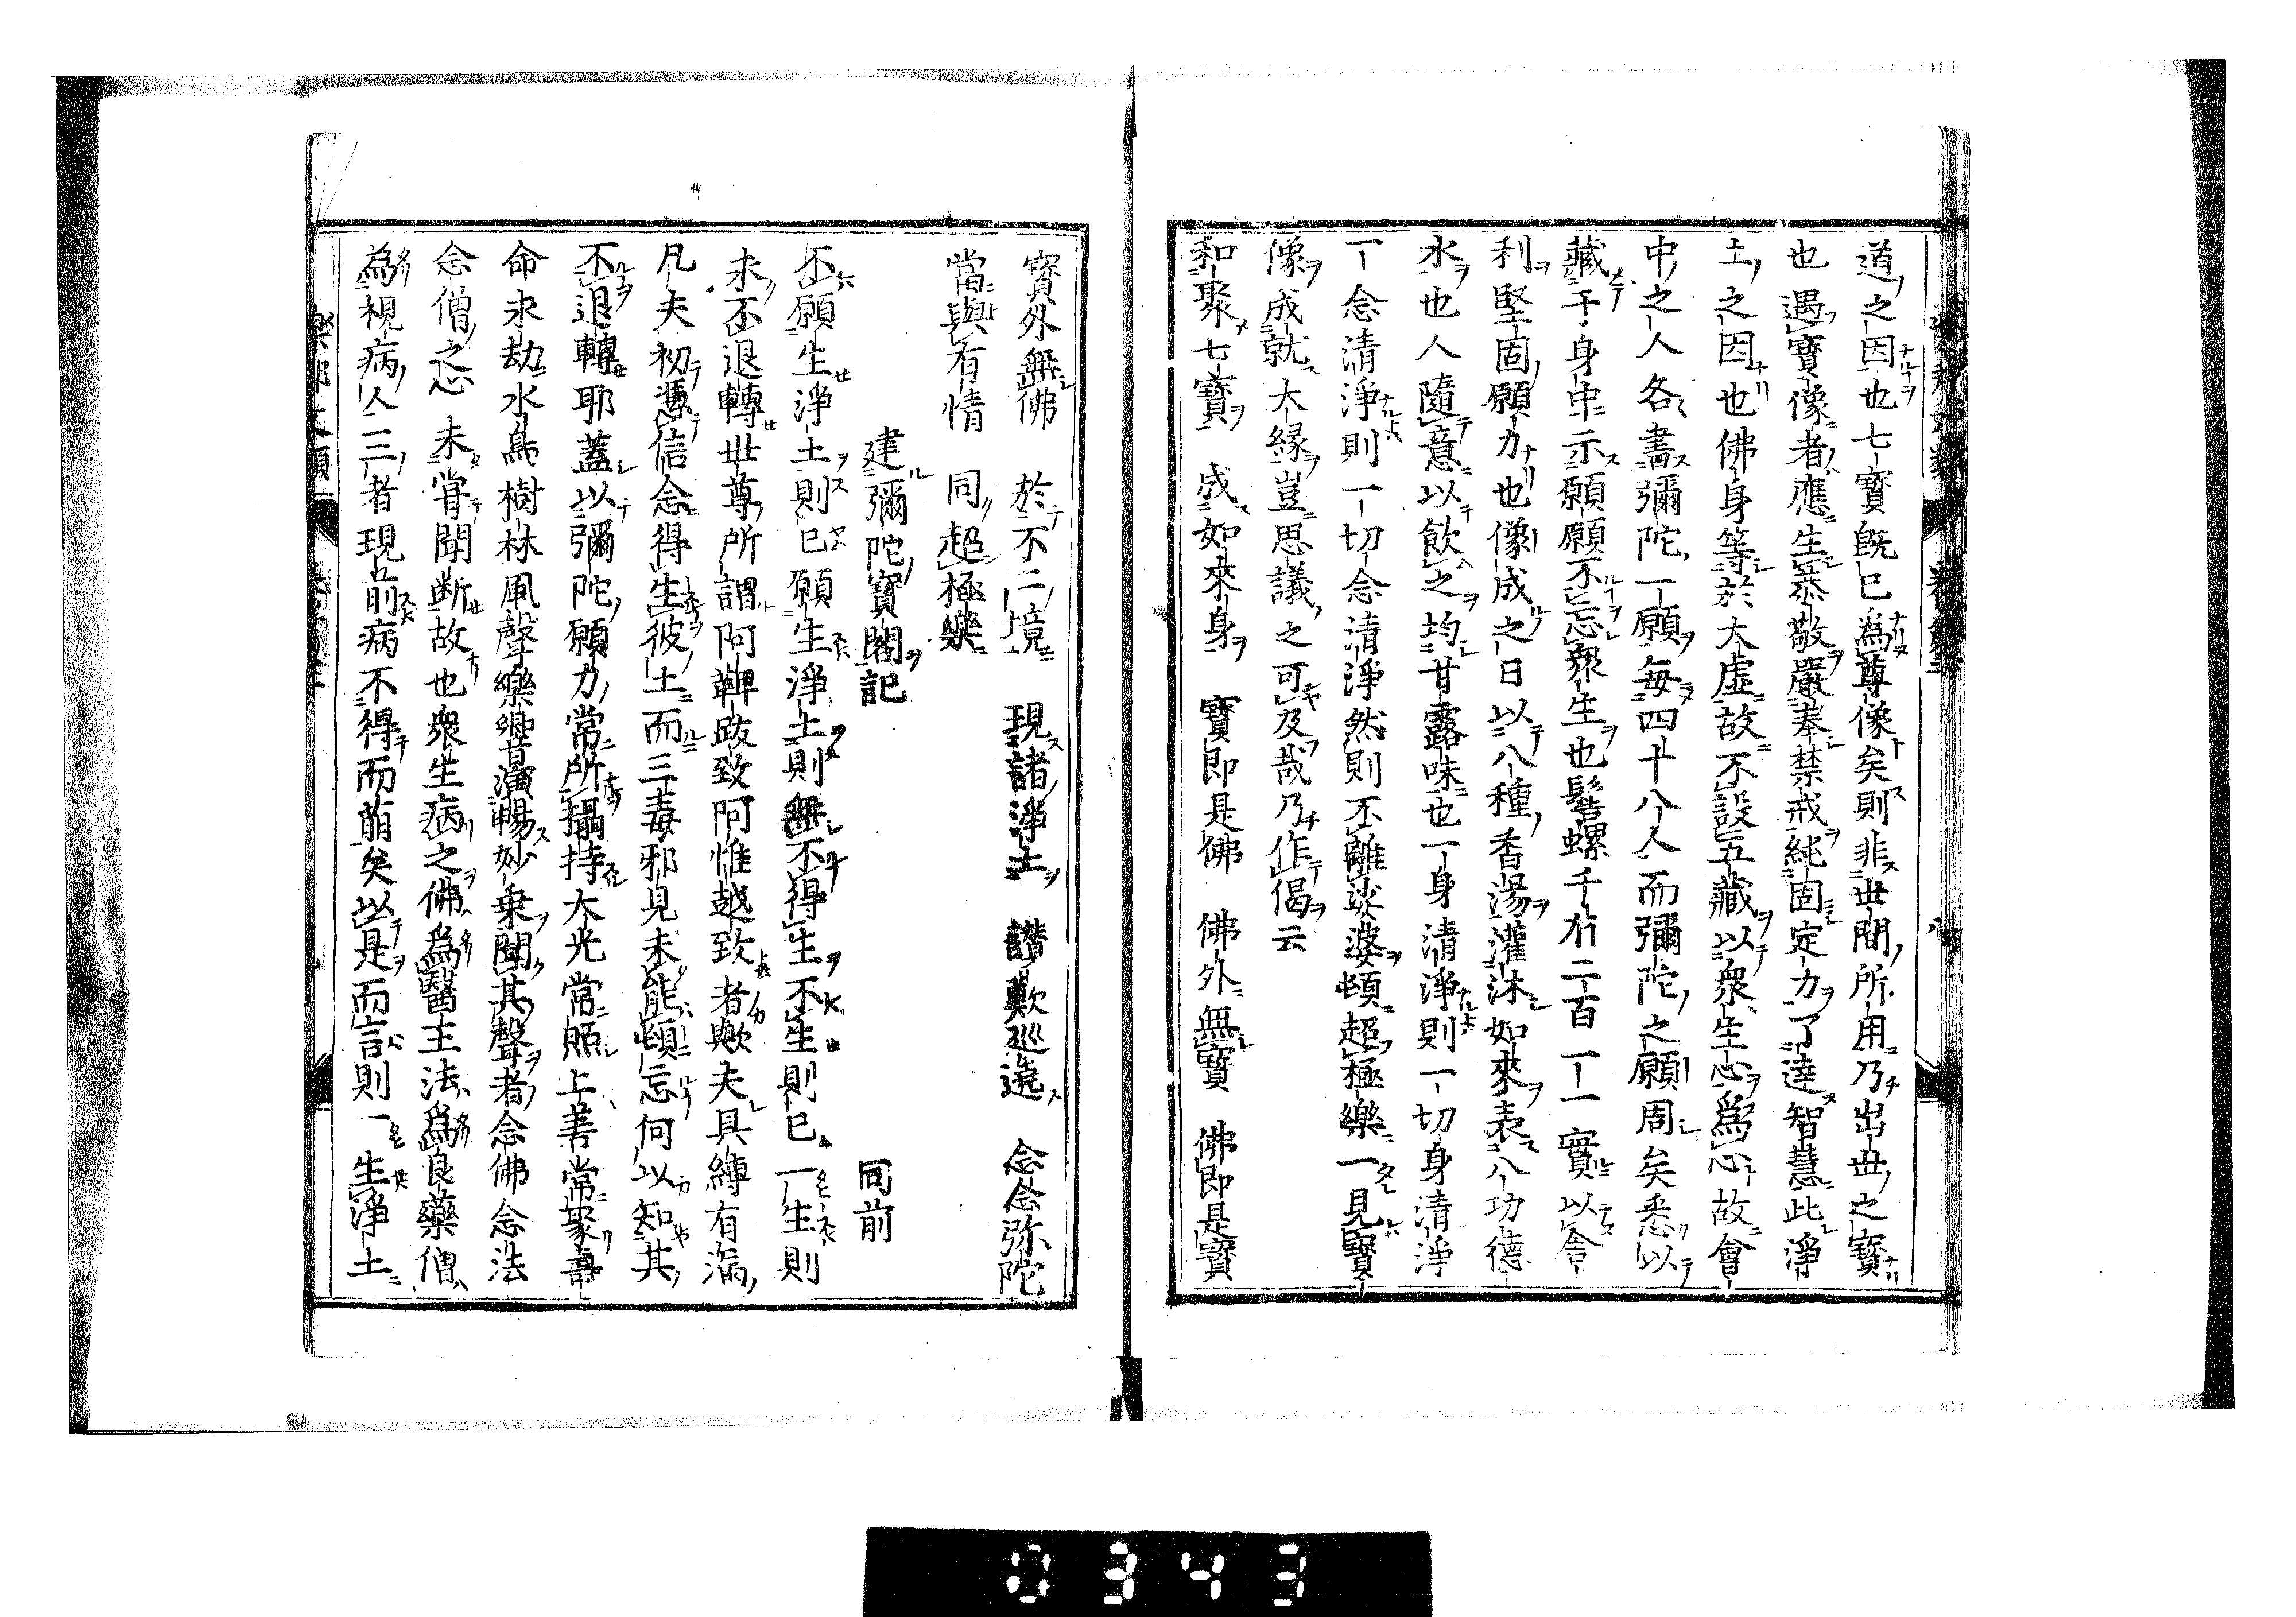 道之因也七寶既已為尊像矣則非世間所用乃出世之寶
也遇寶像者應生恭敬嚴奉禁戒純固定力了達智慧此淨
土之因也佛身等於太虛故不設五藏以衆生心為心故會
中之人各書彌陀一願每四十八人而彌陀之願周矣悉以
藏于身中示願願不忘衆生也髻螺千有二百一一實以舍
利堅固願力也像成之日以八種香湯灌沐如來表八功德
水也人隨意以飲之均甘露味也一身清淨則一切身清淨
一念清淨則一切念清淨然則不離娑婆頓超極樂一見寶
像成就大緣豈思議之可及哉乃作偈云
和聚七寶 成如來身 寶即是佛 佛外無寶 佛即是寶
寶外無佛 於不二境 現諸淨土 讚歎巡遶 念念弥陀
當與有情 同超極樂
建彌陀寶閣記 同前
不願生淨土則已願生淨土則無不得生不生則已一生則
未不退轉世尊所謂阿鞞跋致阿惟越致者歟夫具縛有漏
凡夫初憑信念得生彼土而三毒邪見未能頓忘何以知其
不退轉耶蓋以彌陀願力常所攝持大光常照上善常聚壽
命永劫水鳥樹林風聲樂響演暢妙乗聞其聲者念佛念法
念僧之心未甞聞断故也衆生病之佛為醫王法為良藥僧
為視病人三者現前病不得而萠矣以是而言則一生淨土